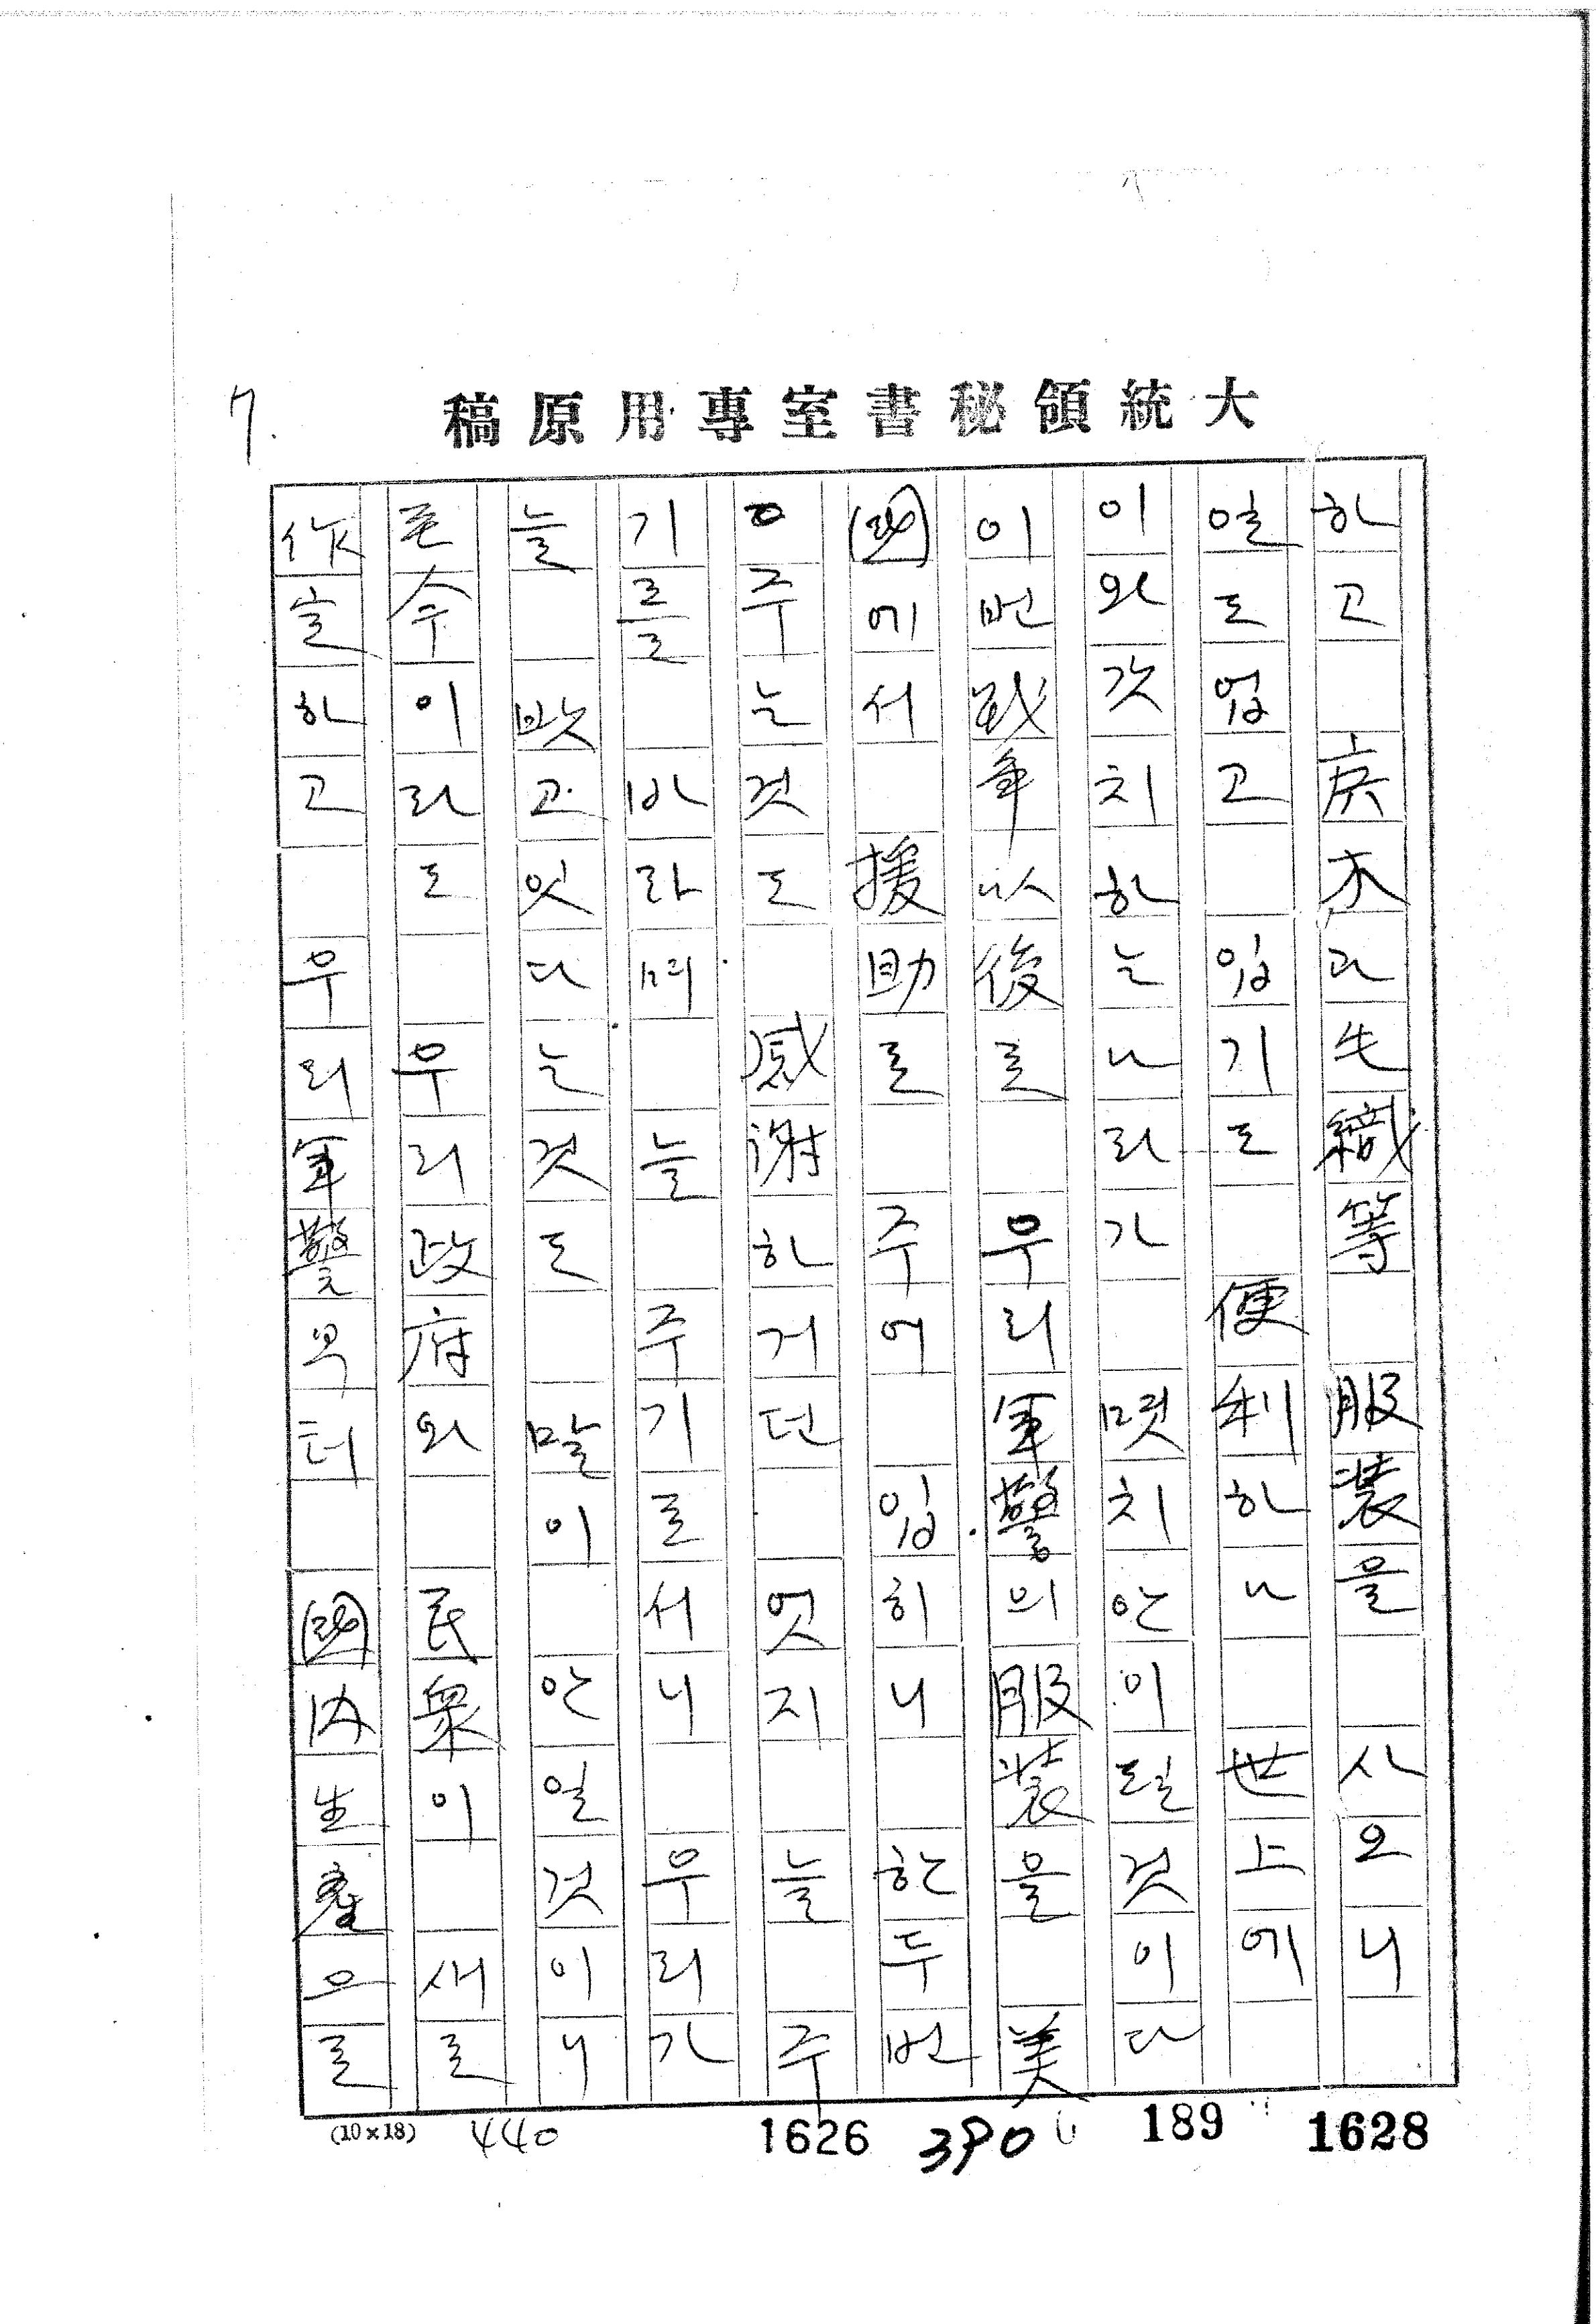 7.
大統領秘書室專用原稿
하고 広木과毛織等 服装을 사오니
일도업고 입기도 便利하나 世上에
이와갓치하는나라가 몃치안이될것이다
이번戰爭以後로 우리軍警의服装을 美
國에서 援助로 주어 입히니 한두번
주는것도 感謝하거던 엇지늘 주
기를 바라며 늘 주기로서니 우리가
늘 밧고잇다는것도 말이 안일것이니
至今이라도 우리政府와 民衆이 새로
作定하고 우리軍警부터 國内生産으로
(10×18) 440 1626 390 189 1628